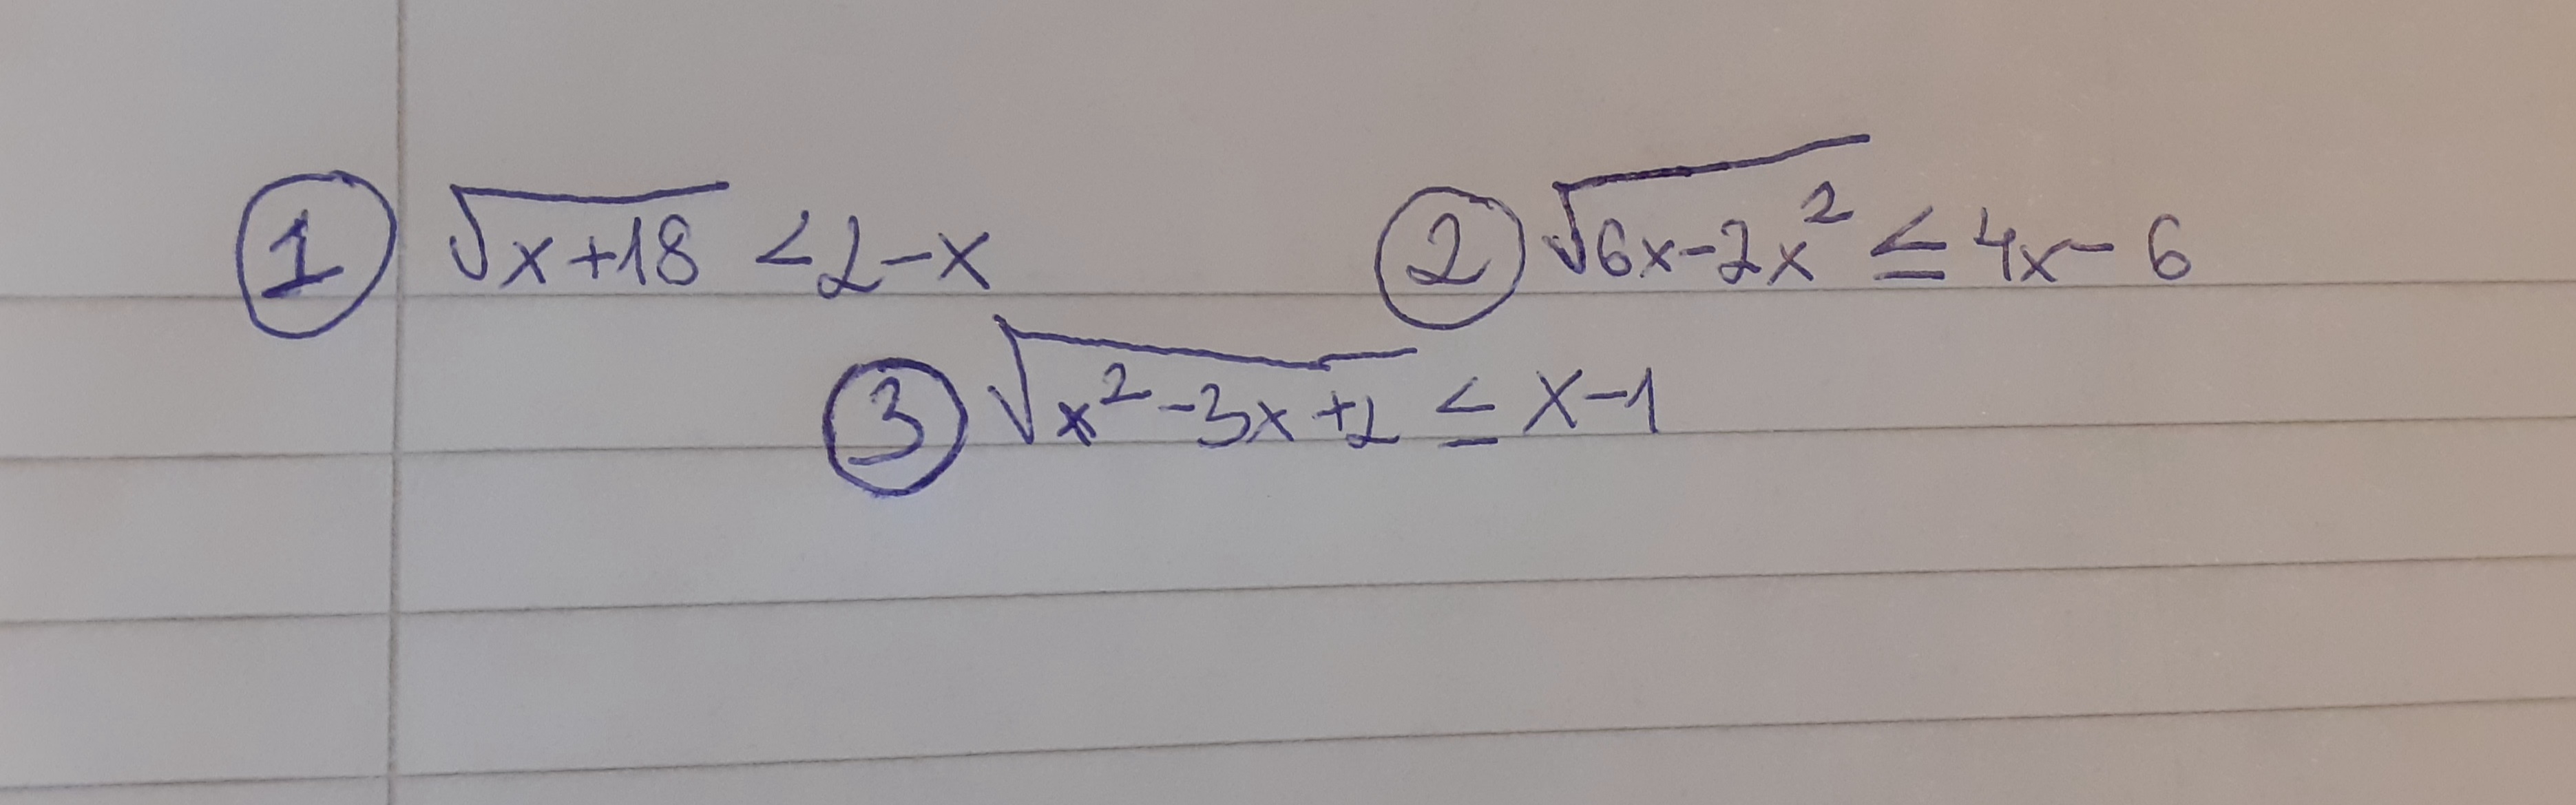 ① √(x+18) < 2-x ② √(6x-2x²) ≤ 4x-6
③ √(x²-3x+2) ≤ x-1